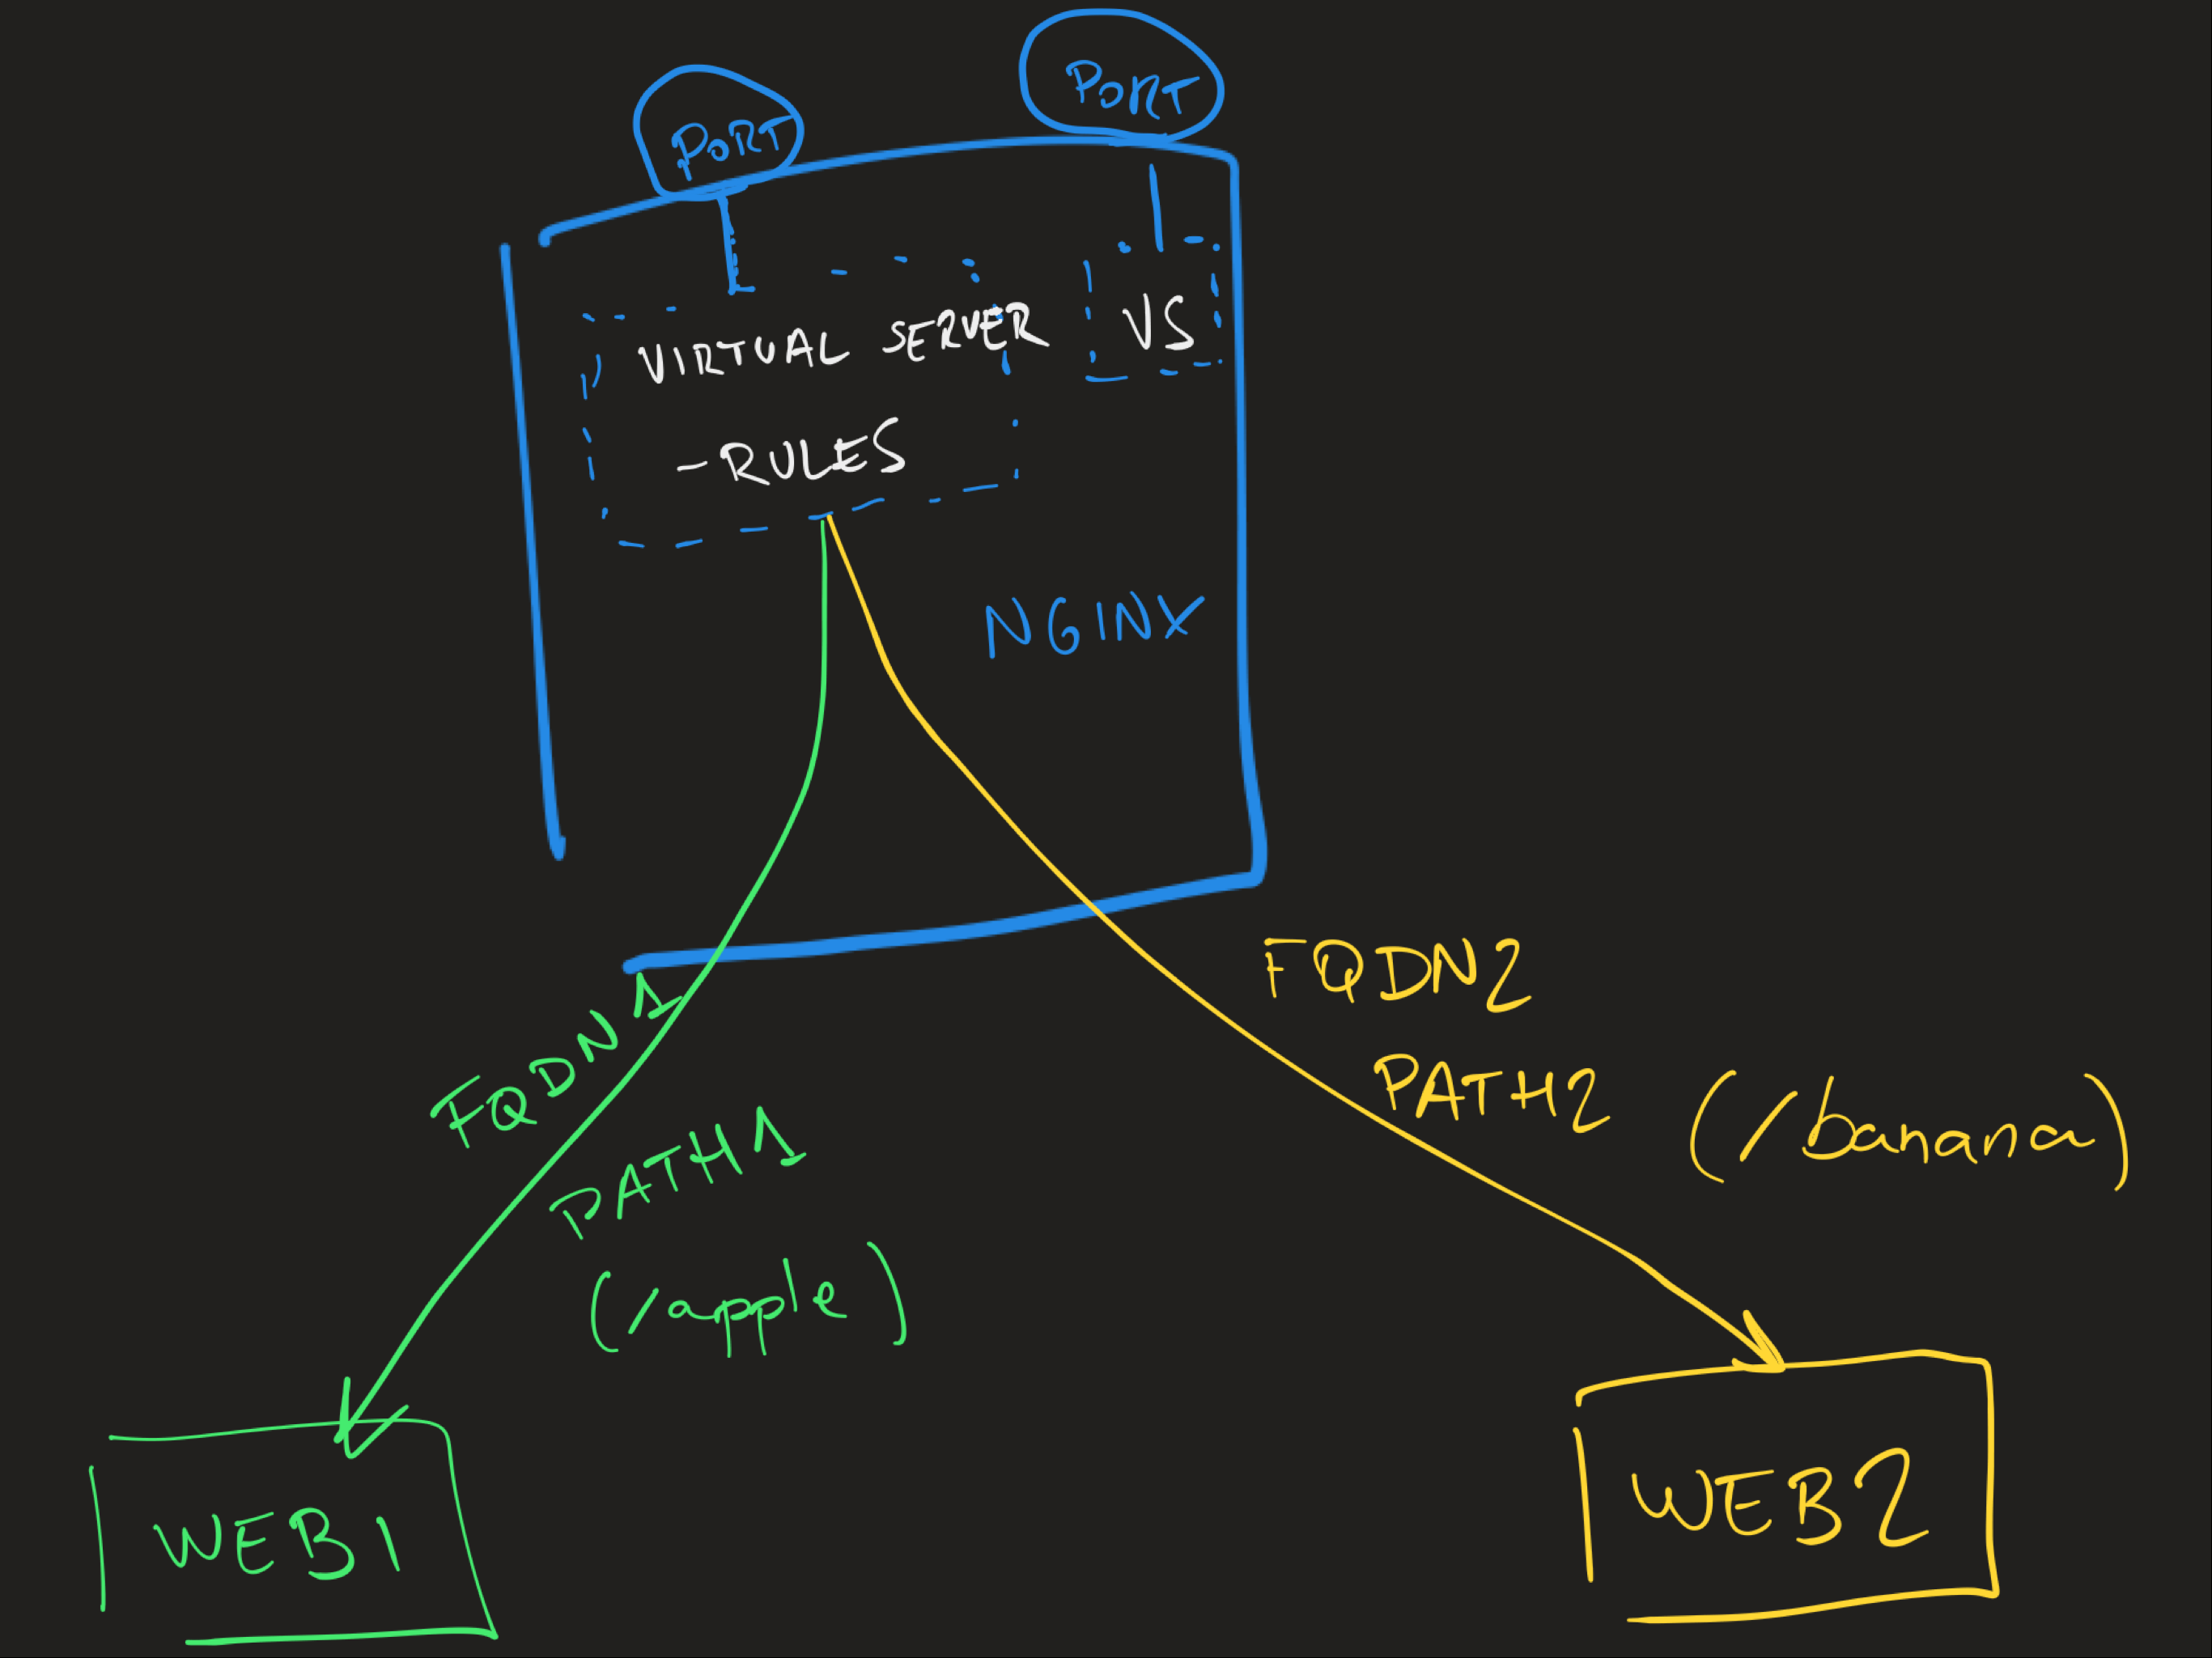 PORT
PORT
VIRTUAL SERVER
- RULES
VS
NGINX
FQDN1
PATH1
(/apple)
FQDN2
PATH2 (/banana)
WEB1
WEB2